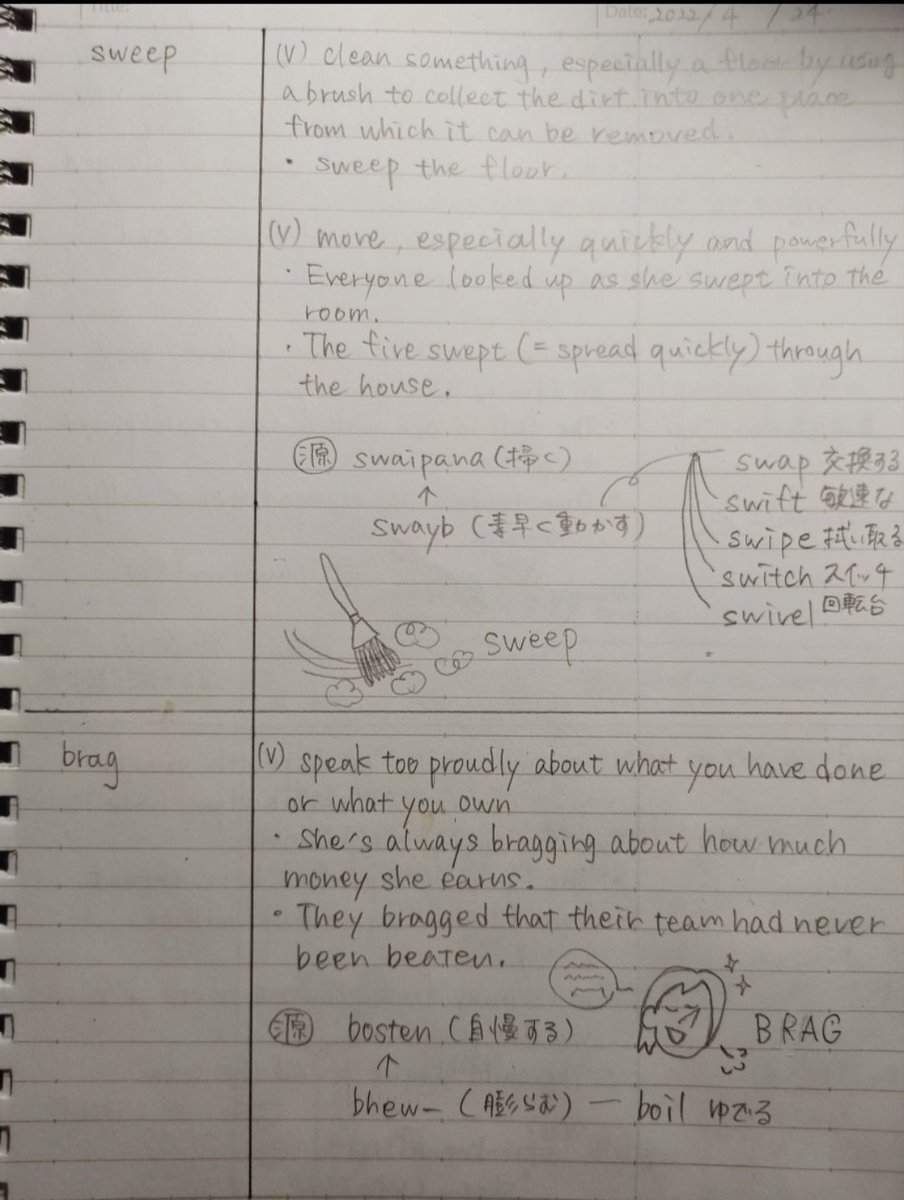 Title:
Date: 2022/4 / 24.
sweep
(V) clean something, especially a floor by using
a brush to collect the dirt into one place
from which it can be removed.
・ sweep the floor.
(V) move, especially quickly and powerfully
・ Everyone looked up as she swept into the
room.
・ The fire swept (= spread quickly) through
the house.
源 swaipana (掃く)
↑
swayb (素早く動かす)
swap 交換する
swift 敏速な
swipe 拭い取る
switch スイッチ
swivel 回転台
sweep
brag
(V) speak too proudly about what you have done
or what you own
・ She's always bragging about how much
money she earns.
・ They bragged that their team had never
been beaten.
源 bosten (自慢する)
BRAG
↑
bhew- (膨らむ) — boil ゆでる